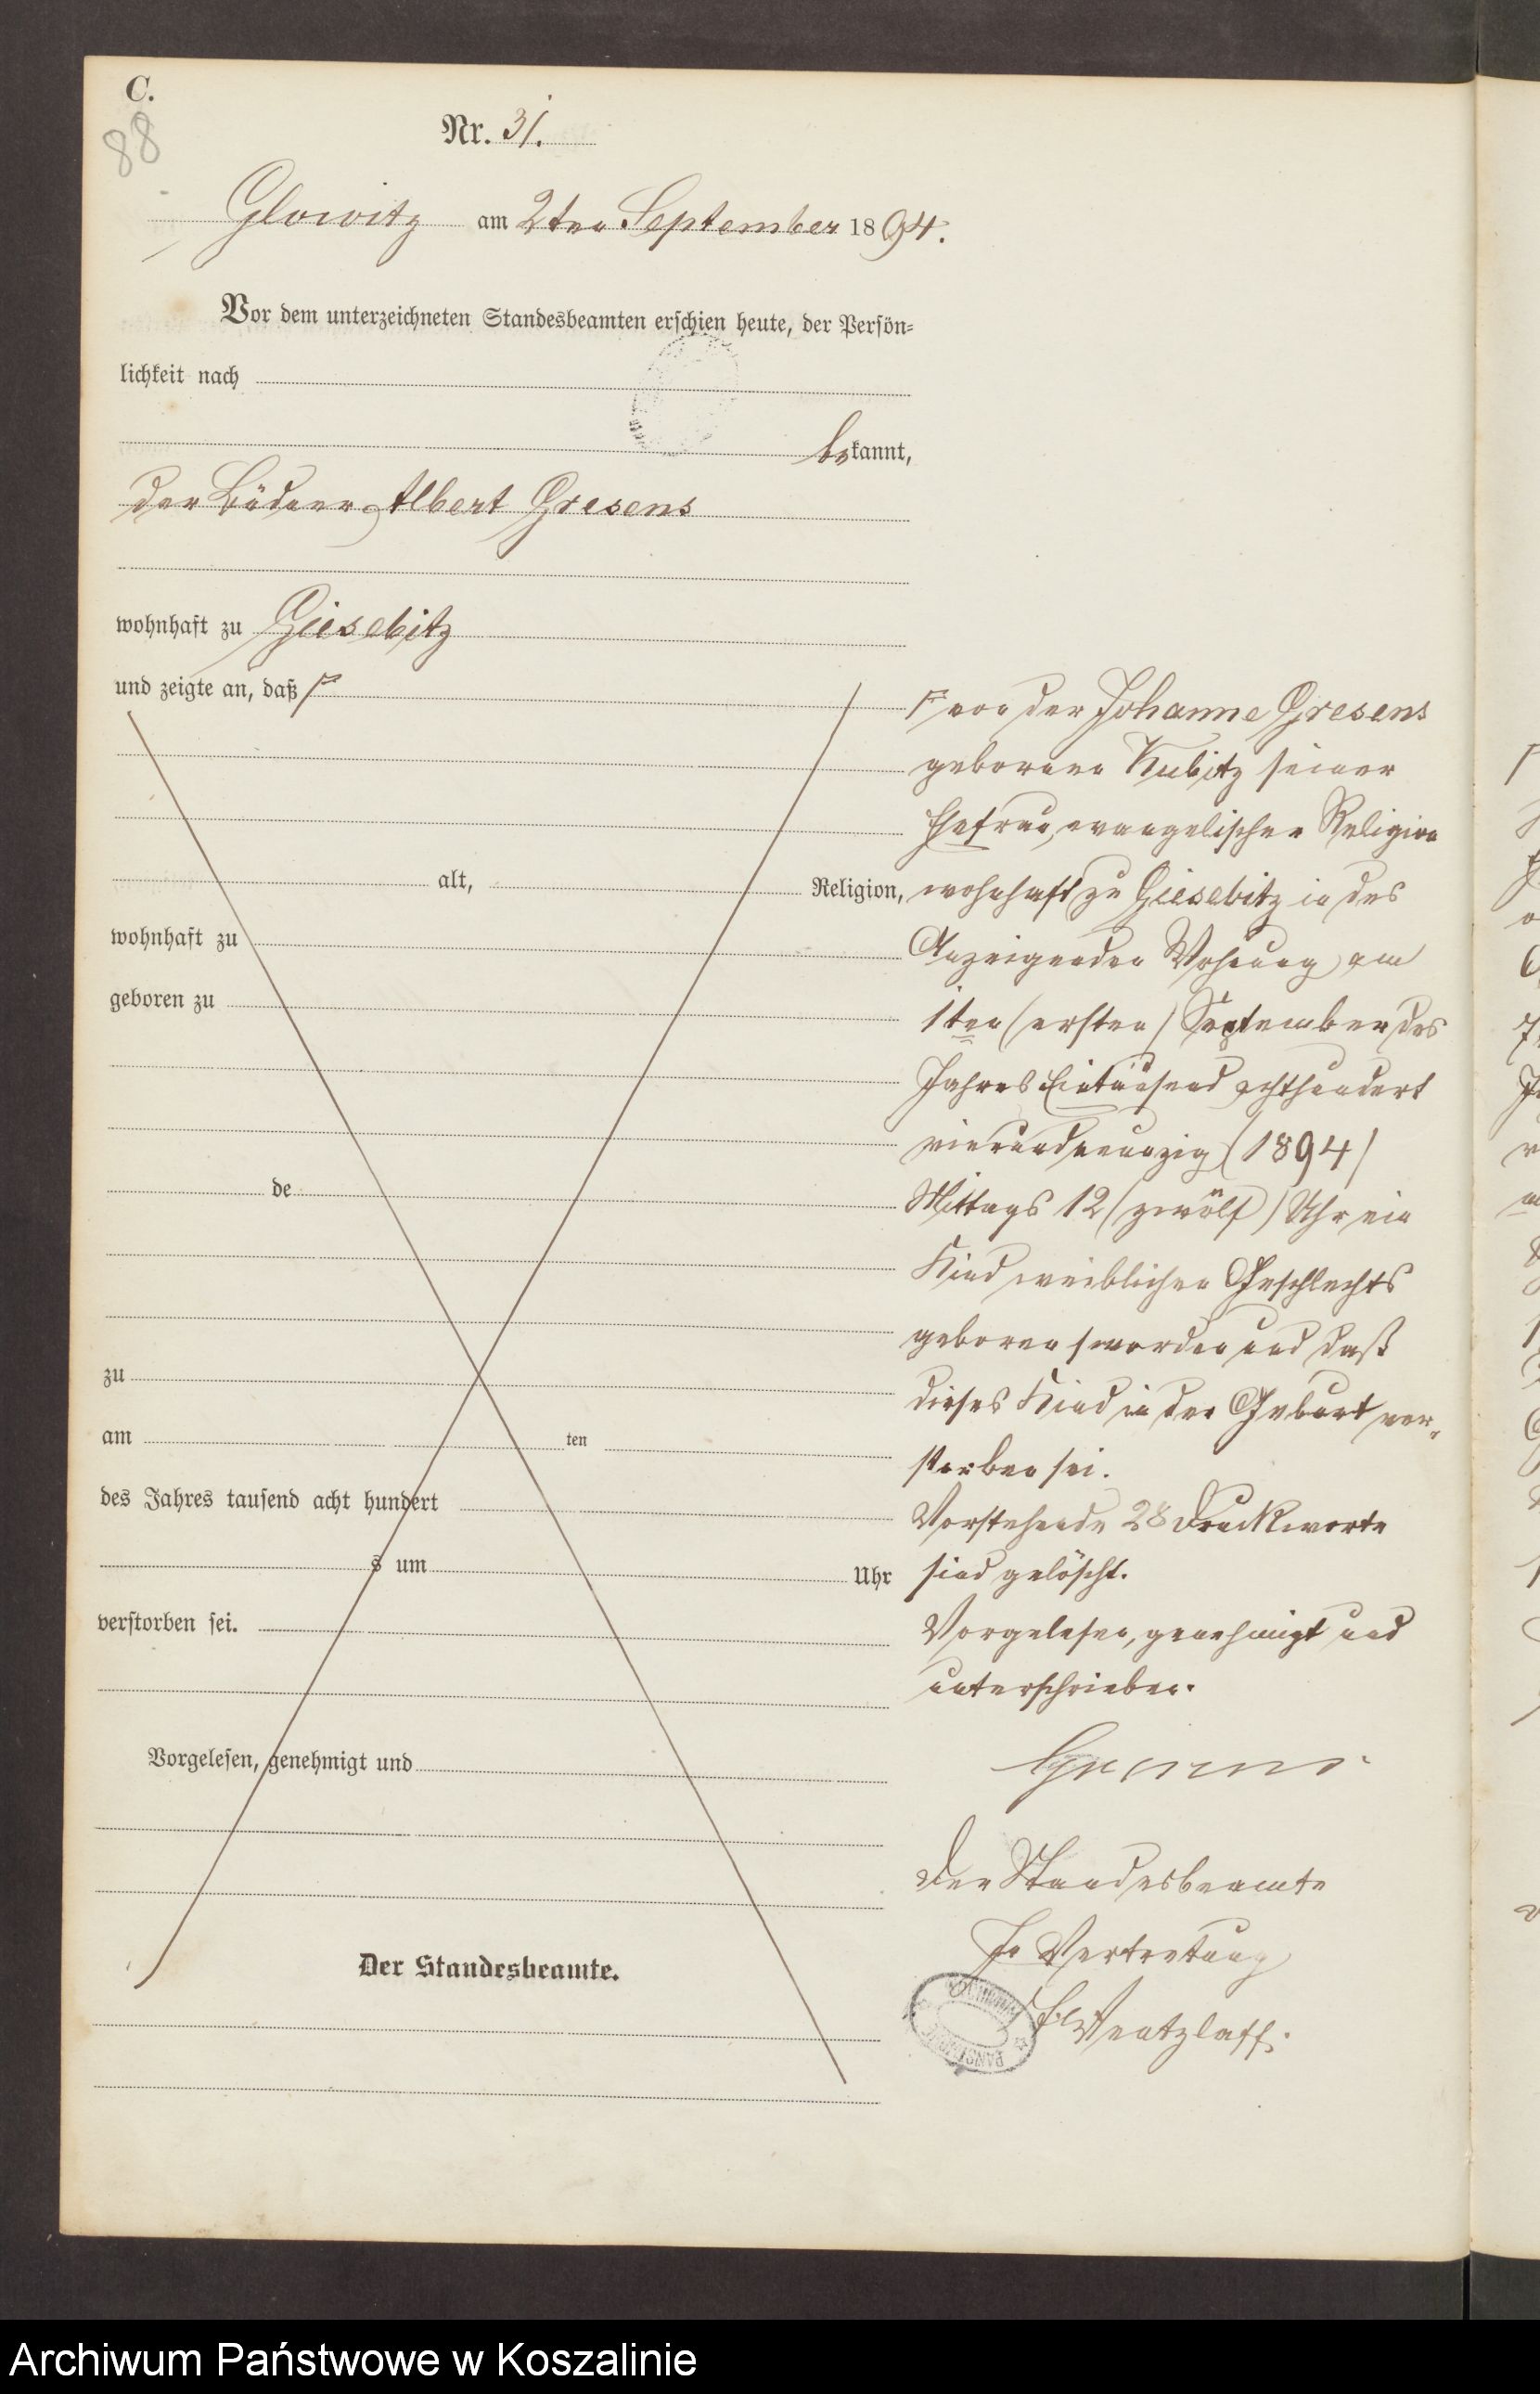 C.
88
Nr. 31.
Glowitz am 2ten September 1894.
Vor dem unterzeichneten Standesbeamten erschien heute, der Persön-
lichkeit nach
bekannt,
der Büdner Albert Gresens
wohnhaft zu Giesebitz
und zeigte an, daß
von der Johanne Gresens
geborenen Kubitz seiner
Ehefrau, evangelischer Religion
alt, Religion, wohnhaft zu Giesebitz in des
wohnhaft zu Anzeigenden Wohnung am
geboren zu 1ten (ersten) September des
Jahres Eintausend achthundert
vierundneunzig (1894)
de Mittags 12 (zwölf) Uhr ein
Kind weiblichen Geschlechts
geboren worden und daß
zu dieses Kind in der Geburt ver-
am ten storben sei.
des Jahres tausend acht hundert Vorstehende 28 Druckworte
s um Uhr sind gelöscht.
verstorben sei. Vorgelesen, genehmigt und
unterschrieben.
Vorgelesen, genehmigt und Gresens
Der Standesbeamte
Der Standesbeamte. In Vertretung
Wentzlaff.
Archiwum Państwowe w Koszalinie